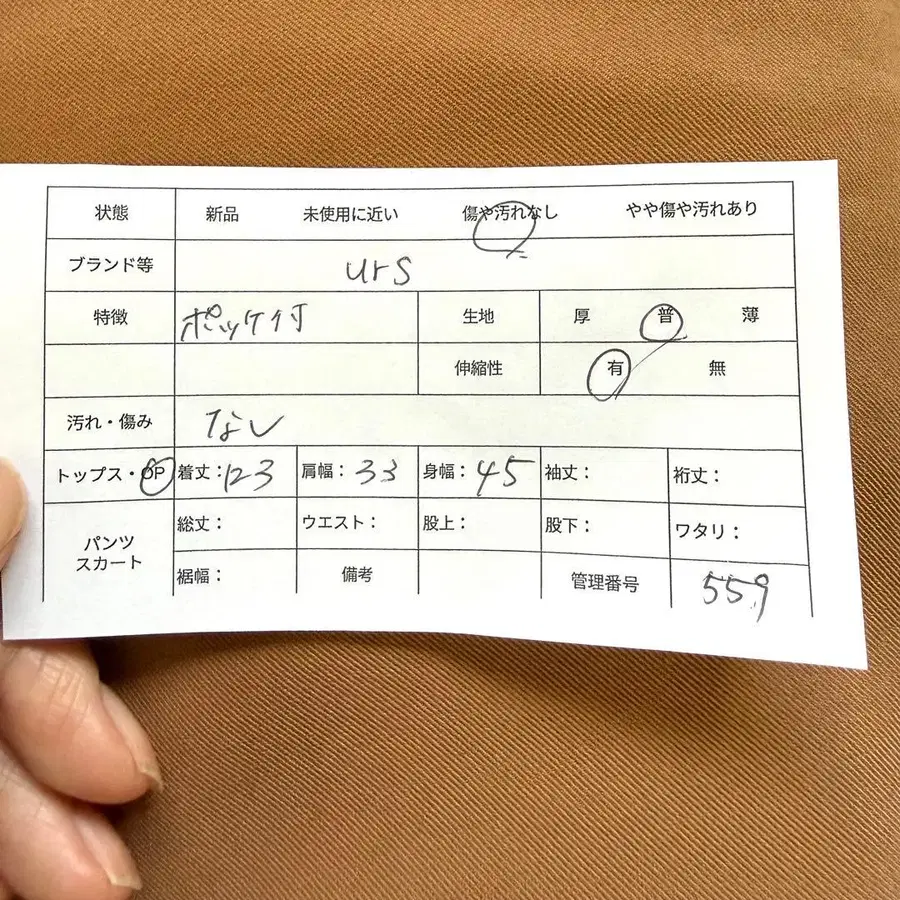 状態 新品 未使用に近い 傷や汚れなし やや傷や汚れあり
ブランド等 urs
特徴 ポッケ付 生地 厚 普 薄
伸縮性 有 無
汚れ・傷み なし
トップス・OP 着丈：123 肩幅：33 身幅：45 袖丈： 裄丈：
パンツ スカート 総丈： ウエスト： 股上： 股下： ワタリ：
裾幅： 備考 管理番号 559